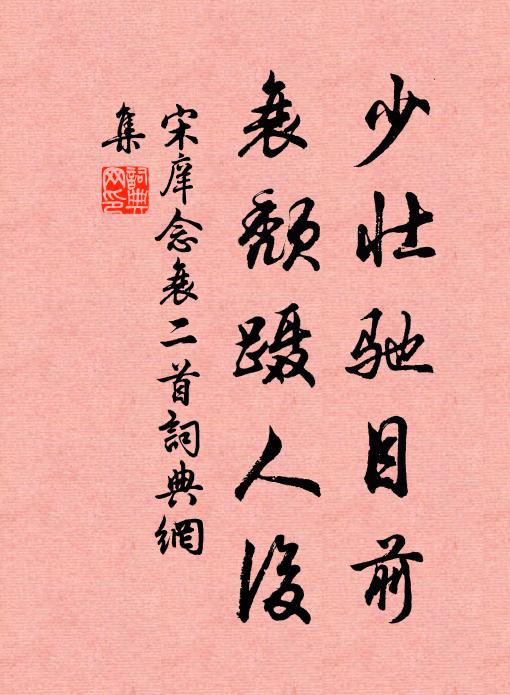 少壮驰目前
衰颓蹑人后
宋庠念衰二首詞典網
集
詞典网印